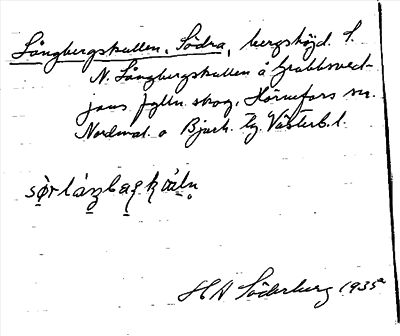 Långbergskullen, Södra, bergshöjd S.
N. Långbergskullen å Grabbsved-
jans fälln. skog, Hörnefors sn.
Nordmal. o Bjurh. tg. Västerb. l.
HA Söderberg 1935